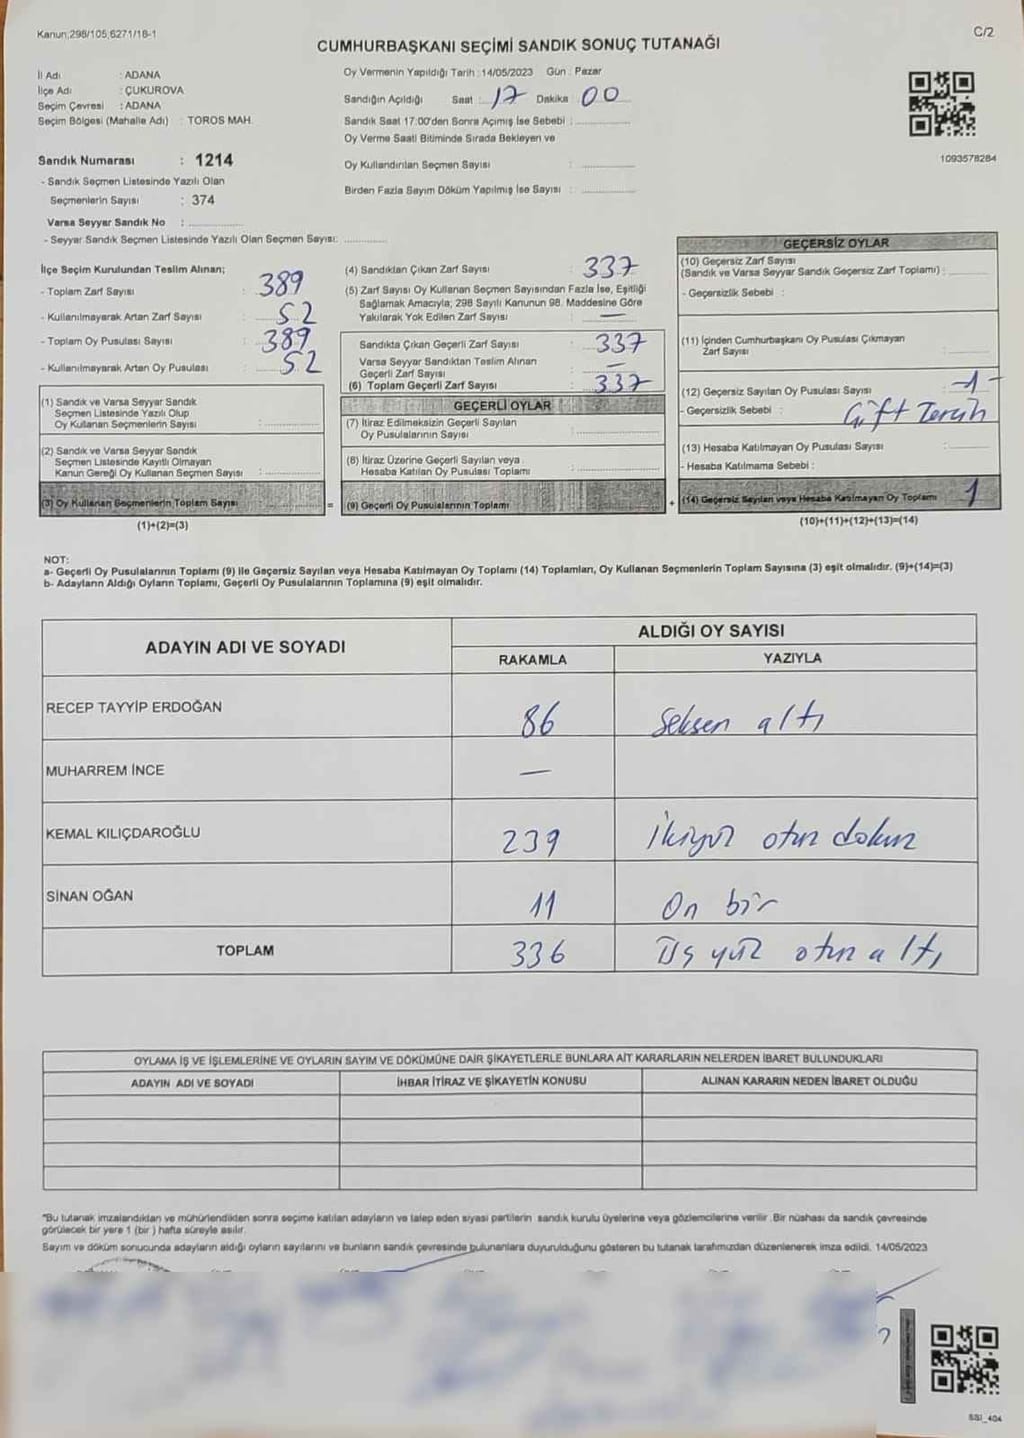 Kanun;298/105;6271/18-1
C/2
CUMHURBAŞKANI SEÇİMİ SANDIK SONUÇ TUTANAĞI
İl Adı : ADANA
İlçe Adı : ÇUKUROVA
Seçim Çevresi : ADANA
Seçim Bölgesi (Mahalle Adı) : TOROS MAH.
Sandık Numarası : 1214
- Sandık Seçmen Listesinde Yazılı Olan
Seçmenlerin Sayısı : 374
Varsa Seyyar Sandık No :
- Seyyar Sandık Seçmen Listesinde Yazılı Olan Seçmen Sayısı:
Oy Vermenin Yapıldığı Tarih :14/05/2023 Gün : Pazar
Sandığın Açıldığı Saat : 17 Dakika 00
Sandık Saat 17:00'den Sonra Açımış İse Sebebi :
Oy Verme Saati Bitiminde Sırada Bekleyen ve
Oy Kullandırılan Seçmen Sayısı :
Birden Fazla Sayım Döküm Yapılmış İse Sayısı :
1093578284
İlçe Seçim Kurulundan Teslim Alınan;
- Toplam Zarf Sayısı : 389
- Kullanılmayarak Artan Zarf Sayısı : 52
- Toplam Oy Pusulası Sayısı : 389
- Kullanılmayarak Artan Oy Pusulası : 52
(1) Sandık ve Varsa Seyyar Sandık
Seçmen Listesinde Yazılı Olup
Oy Kullanan Seçmenlerin Sayısı :
(2) Sandık ve Varsa Seyyar Sandık
Seçmen Listesinde Kayıtlı Olmayan
Kanun Gereği Oy Kullanan Seçmen Sayısı :
(3) Oy Kullanan Seçmenlerin Toplam Sayısı :
(1)+(2)=(3)
(4) Sandıktan Çıkan Zarf Sayısı : 337
(5) Zarf Sayısı Oy Kullanan Seçmen Sayısından Fazla İse, Eşitliği
Sağlamak Amacıyla; 298 Sayılı Kanunun 98. Maddesine Göre
Yakılarak Yok Edilen Zarf Sayısı : —
Sandıkta Çıkan Geçerli Zarf Sayısı : 337
Varsa Seyyar Sandıktan Teslim Alınan
Geçerli Zarf Sayısı : —
(6) Toplam Geçerli Zarf Sayısı : 337
GEÇERLİ OYLAR
(7) İtiraz Edilmeksizin Geçerli Sayılan
Oy Pusulalarının Sayısı :
(8) İtiraz Üzerine Geçerli Sayılan veya
Hesaba Katılan Oy Pusulası Toplamı :
= (9) Geçerli Oy Pusulalarının Toplamı
GEÇERSİZ OYLAR
(10) Geçersiz Zarf Sayısı
(Sandık ve Varsa Seyyar Sandık Geçersiz Zarf Toplamı) :
- Geçersizlik Sebebi :
(11) İçinden Cumhurbaşkanı Oy Pusulası Çıkmayan
Zarf Sayısı :
(12) Geçersiz Sayılan Oy Pusulası Sayısı : -1-
- Geçersizlik Sebebi : Çift Tercih
(13) Hesaba Katılmayan Oy Pusulası Sayısı :
- Hesaba Katılmama Sebebi :
+ (14) Geçersiz Sayılan veya Hesaba Katılmayan Oy Toplamı 1
(10)+(11)+(12)+(13)=(14)
NOT:
a- Geçerli Oy Pusulalarının Toplamı (9) ile Geçersiz Sayılan veya Hesaba Katılmayan Oy Toplamı (14) Toplamları, Oy Kullanan Seçmenlerin Toplam Sayısına (3) eşit olmalıdır. (9)+(14)=(3)
b- Adayların Aldığı Oyların Toplamı, Geçerli Oy Pusulalarının Toplamına (9) eşit olmalıdır.
ADAYIN ADI VE SOYADI
ALDIĞI OY SAYISI
RAKAMLA YAZIYLA
RECEP TAYYİP ERDOĞAN 86 Seksen altı
MUHARREM İNCE —
KEMAL KILIÇDAROĞLU 239 İkiyüz otuz dokuz
SİNAN OĞAN 11 On bir
TOPLAM 336 Üç yüz otuz altı
OYLAMA İŞ VE İŞLEMLERİNE VE OYLARIN SAYIM VE DÖKÜMÜNE DAİR ŞİKAYETLERLE BUNLARA AİT KARARLARIN NELERDEN İBARET BULUNDUKLARI
ADAYIN ADI VE SOYADI İHBAR İTİRAZ VE ŞİKAYETİN KONUSU ALINAN KARARIN NEDEN İBARET OLDUĞU
"Bu tutanak imzalandıktan ve mühürlendikten sonra seçime katılan adayların ve talep eden siyasi partilerin sandık kurulu üyelerine veya gözlemcilerine verilir .Bir nüshası da sandık çevresinde
görülecek bir yere 1 (bir ) hafta süreyle asılır.
Sayım ve döküm sonucunda adayların aldığı oyların sayılarını ve bunların sandık çevresinde bulunanlara duyurulduğunu gösteren bu tutanak tarafımızdan düzenlenerek imza edildi. 14/05/2023
SSI_404